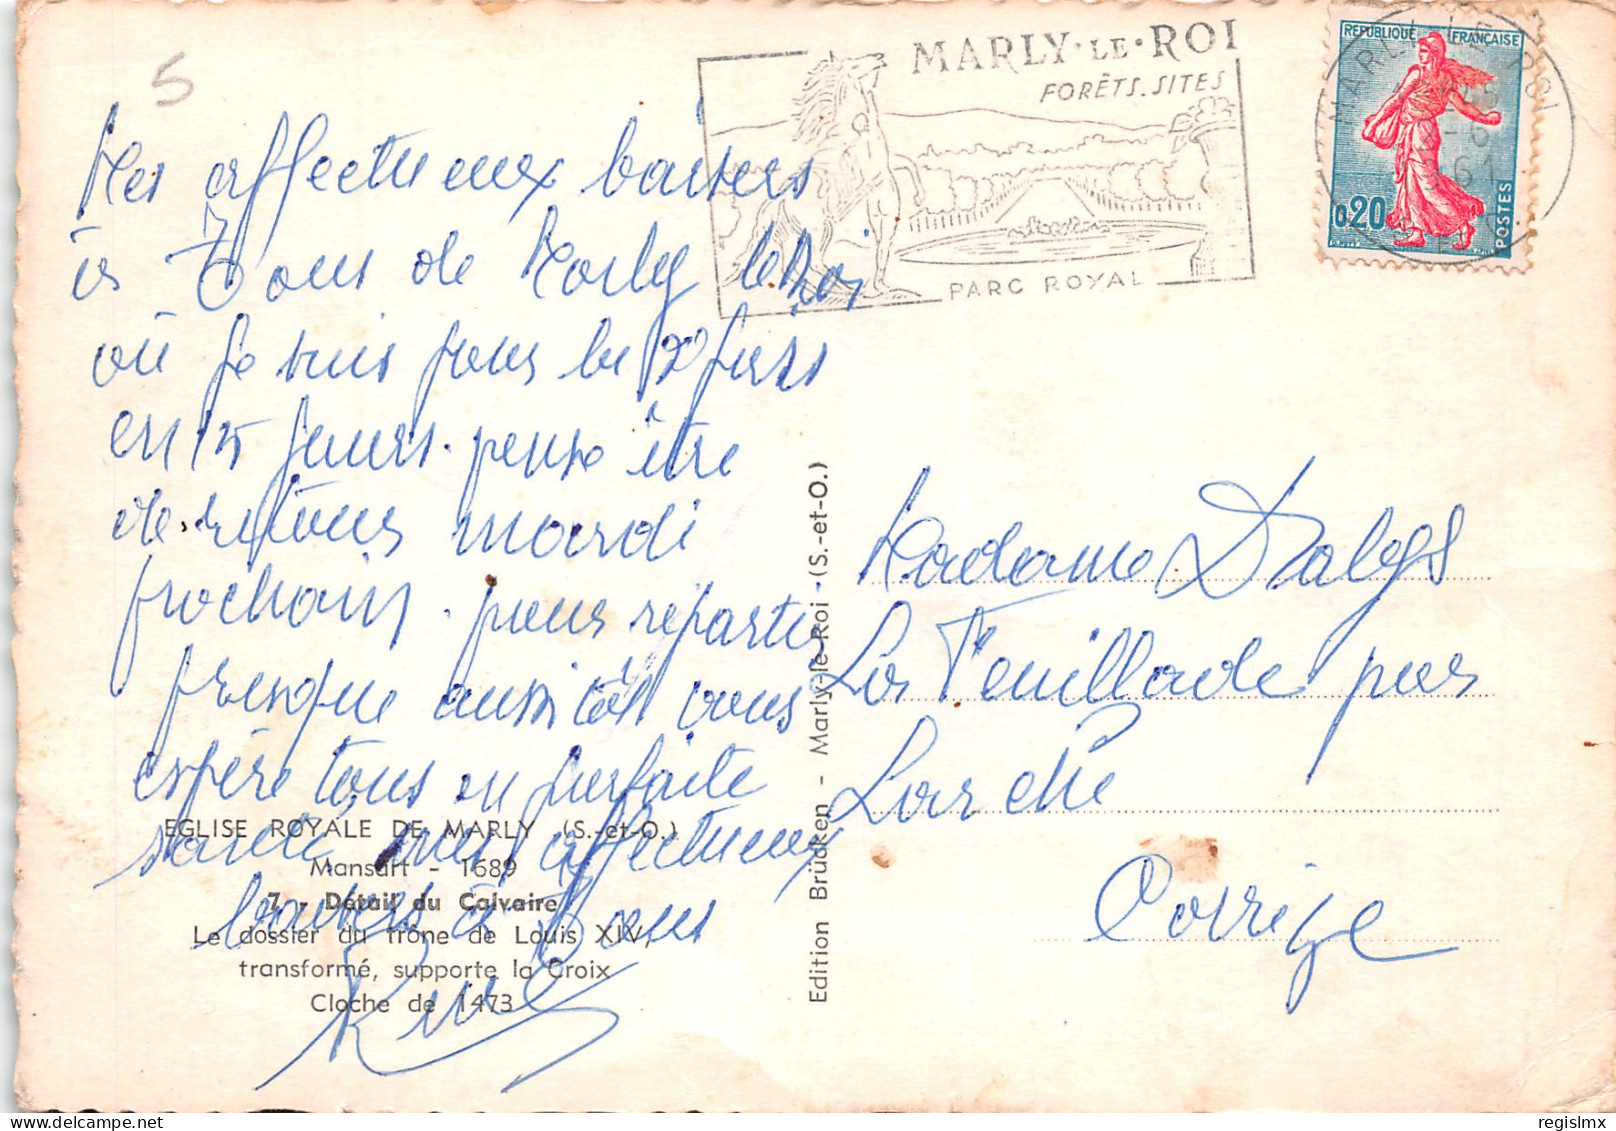 5
MARLY·LE·ROI
FORÊTS.SITES
PARC ROYAL
RÉPUBLIQUE FRANÇAISE
0,20
POSTES
MARLY LE ROI
-6
61
Mes affectueux baisers
à Tous de Marly le Roi
où je suis pour la 2e fois
en 15 jours. pense être
de retour mardi
prochain. pour repartir
presque aussitôt vous
espère tous en parfaite
santé affectueux
baisers à Tous
EGLISE ROYALE DE MARLY (S.-et-O.)
Mansart - 1689
7 - Détail du Calvaire
Le dossier du trône de Louis XIV,
transformé, supporte la Croix
Cloche de 1473
Edition Brücken - Marly-le-Roi - (S.-et-O.)
Madame
La Feuillade par
Larche
Corrèze
regislmx